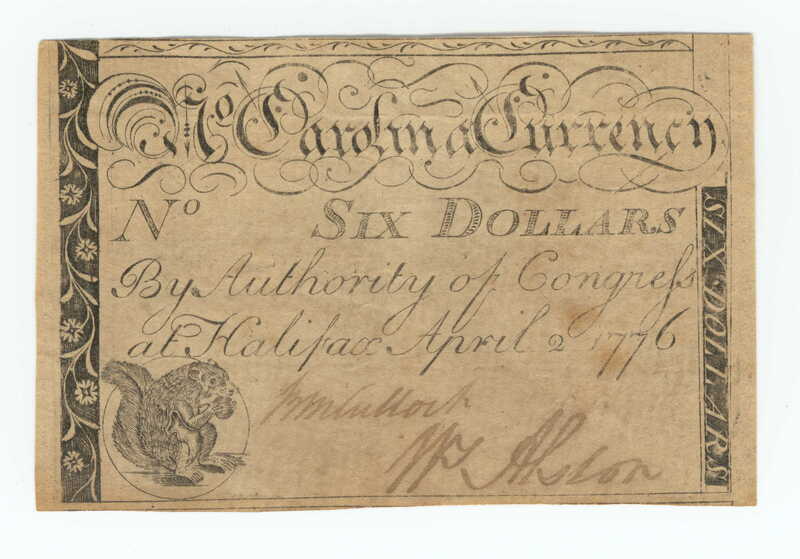 No Carolina Currency
No SIX DOLLARS
By Authority of Congress
at Halifax April 2 1776
SIX DOLLARS
Wm Alston